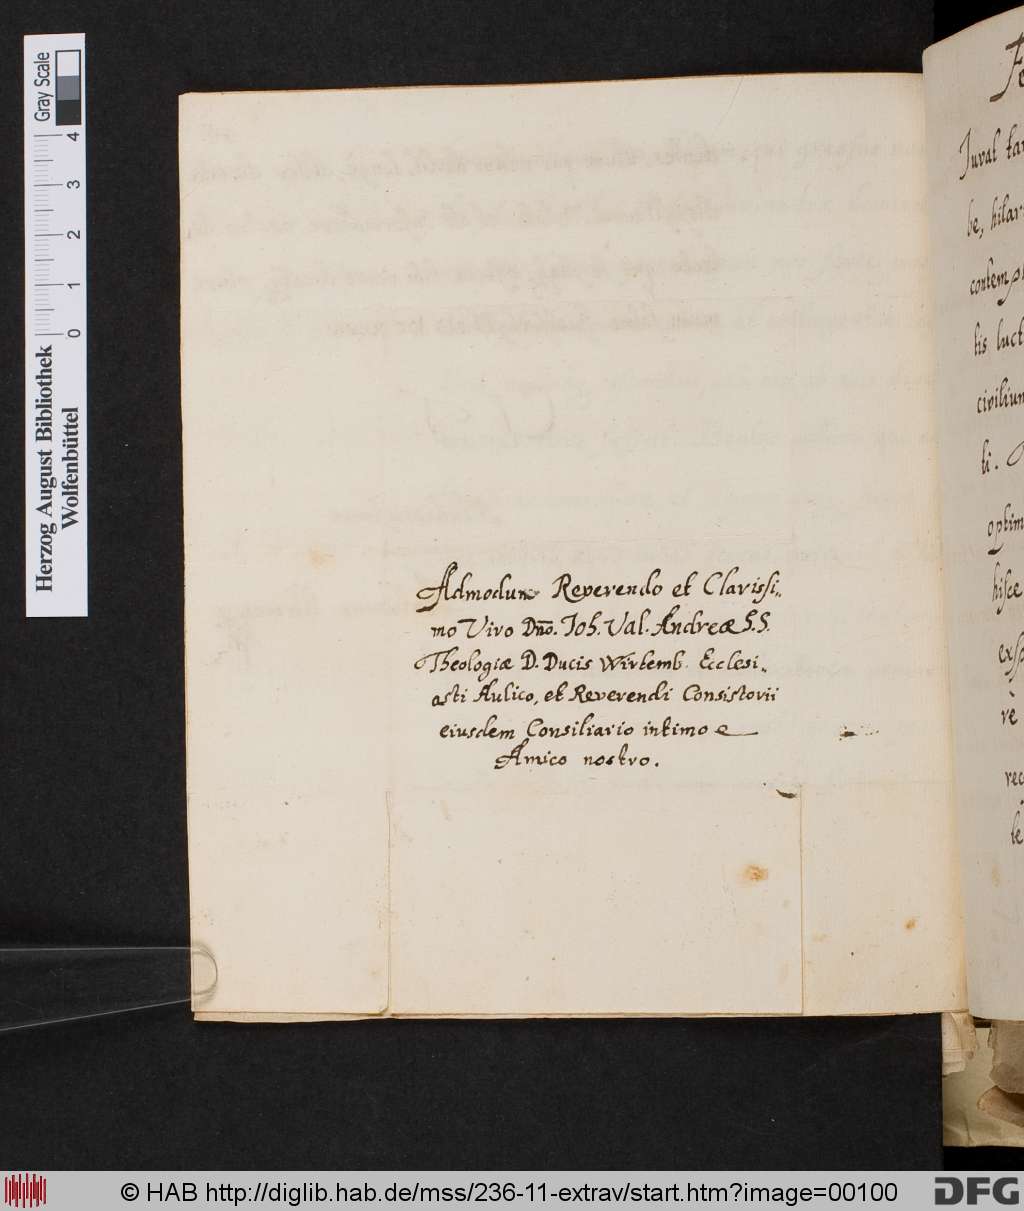 Gray Scale
4
3
2
1
0
Herzog August Bibliothek
Wolfenbüttel
Admodum Reverendo et Clarissi„
mo Viro Dno. Joh. Val. Andreæ S.S.
Theologiæ D. Ducis Wirtemb. Ecclesi„
asti Aulico, et Reverendi Consistorii
eiusdem Consiliario intimo
Amico nostro.
Juval
be, hilar
contemp
tis luct
civilium
ti.
optim
hisce
exsp
rè
rec
te
© HAB http://diglib.hab.de/mss/236-11-extrav/start.htm?image=00100
DFG